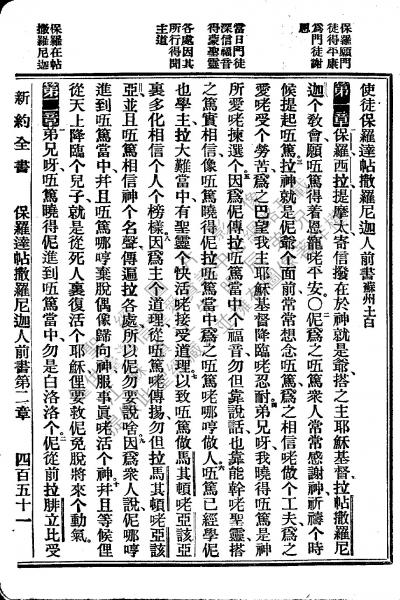 保羅願門
徒得平康
爲門徒謝
恩
當日門徒
深信福音
得蒙聖靈
各處因其
所行得聞
主道
保羅在帖
撒羅尼迦
使徒保羅達帖撒羅尼迦人前書 蘇州土白
第一章 保羅西拉提摩太寄信撥在於神就是爺搭之主耶穌基督拉帖撒羅尼
迦个敎會願伍篤得着恩寵咾平安〇伲爲之伍篤衆人常常感謝神祈禱个時
候提起伍篤拉神就是伲爺个面前常常想念伍篤爲之相信咾做个工夫爲之
愛咾受个勞苦爲之巴望我主耶穌基督降臨咾忍耐弟兄呀我曉得伍篤是神
所愛咾揀選个因爲伲傳拉伍篤當中个福音勿但靠說話也靠能幹咾聖靈搭
之篤實相信像伍篤曉得伲拉伍篤當中爲之伍篤咾哪哼做人伍篤已經學伲
也學主拉大難當中有聖靈个快活咾接受道理以致伍篤做馬其頓咾亞該亞
裏多化相信个人个榜樣因爲主个道理從伍篤咾傳揚勿但拉馬其頓咾亞該
亞並且伍篤相信神个名聲傳遍拉各處所以伲勿要說啥因爲衆人說伲哪哼
進到伍篤當中幷且伍篤哪哼棄脫偶像歸向神服事眞咾活个神幷且等候俚
從天上降臨个兒子就是從死人裏復活个耶穌俚要救伲免脫將來个動氣
第二章 弟兄呀伍篤曉得伲進到伍篤當中勿是白洛洛个伲從前拉腓立比受
新約全書 保羅達帖撒羅尼迦人前書第二章 四百五十一